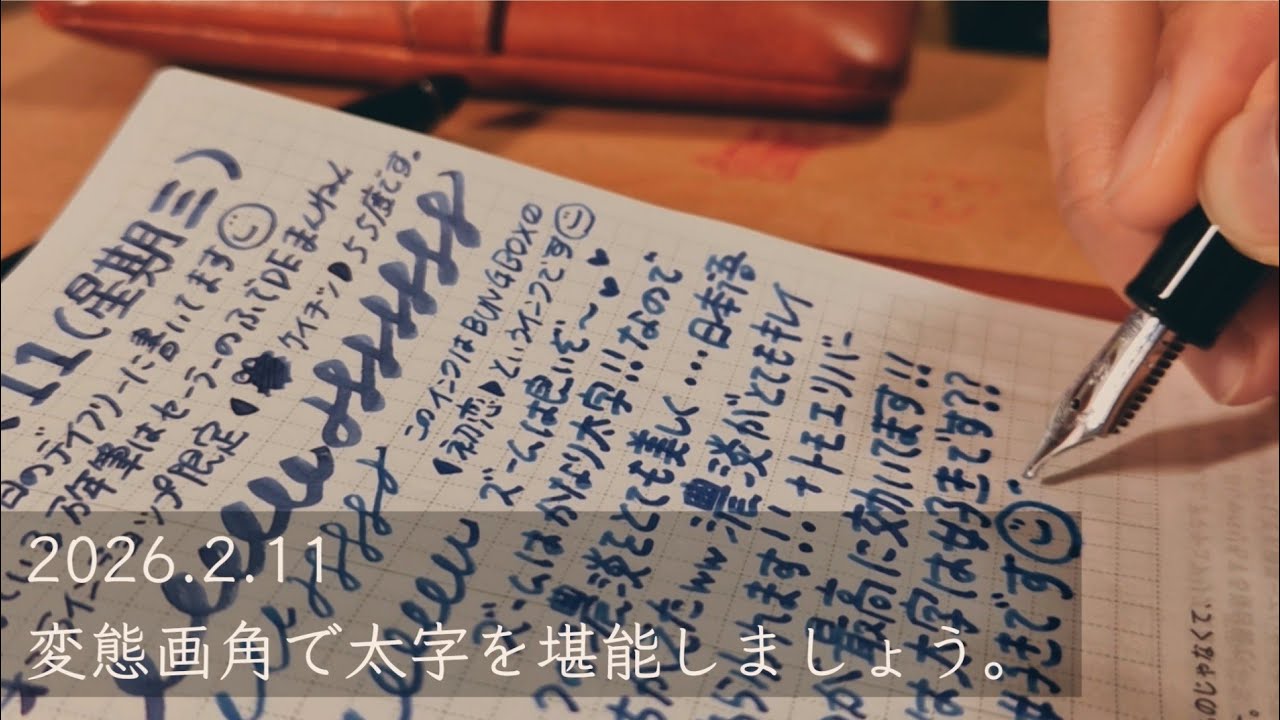 11(星期三)
日のデイブリーに書いてます
万年筆はセーラーのふでDEまんねん
ップ限定 ケイチジン 55度です。
このインクはBUNGBOXの
初恋というインクです
ズームは良いぞ〜
ズームはかなり太字!!なので、
濃淡とても美しく…日本語
ちがったww 濃淡がとてもキレイ
られます!! +トモエリバー
が最高に効いてます!!
は太字は好きです??
好きです
のじゃなくて、
2026.2.11
変態画角で太字を堪能しましょう。